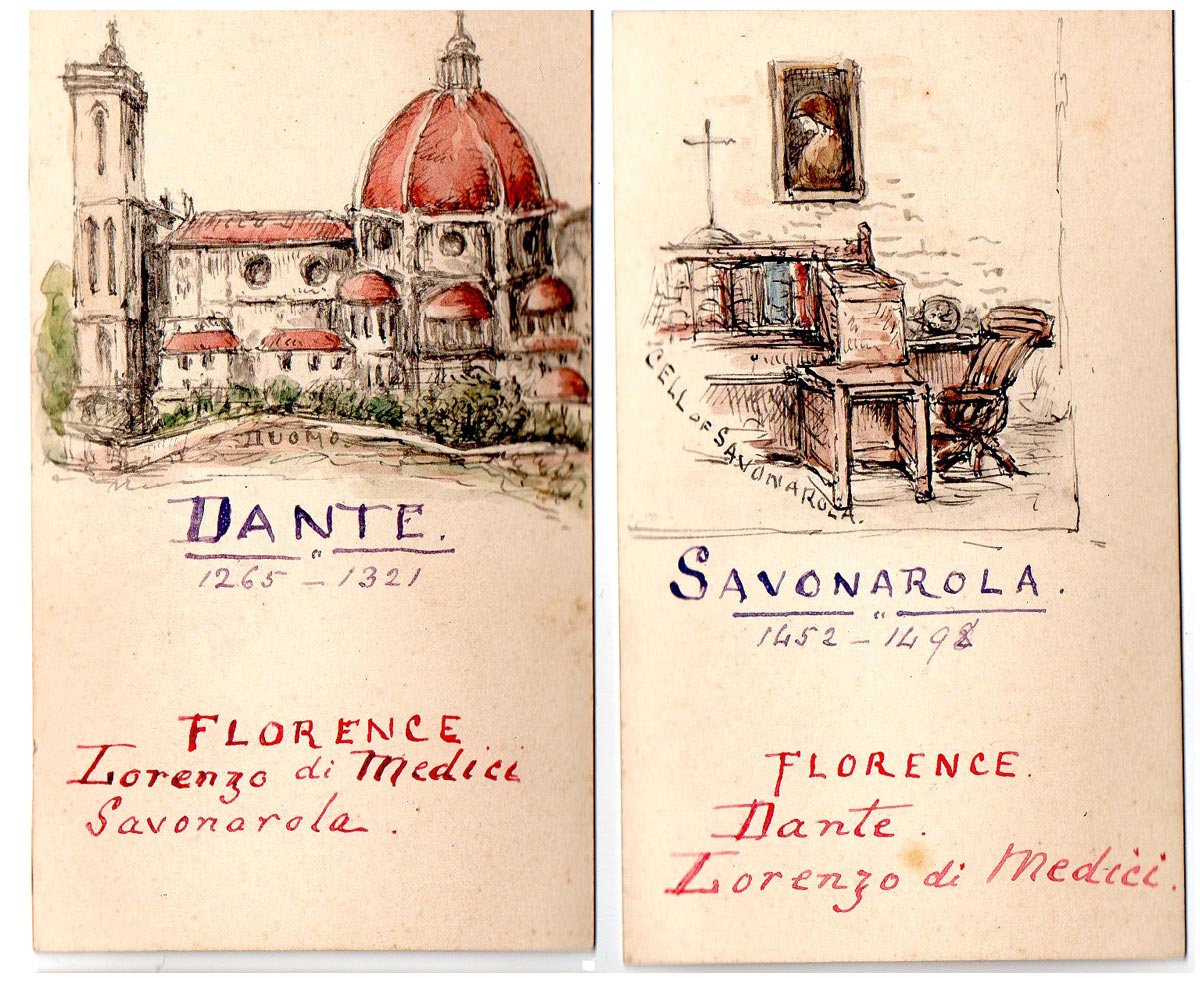 DUOMO.
DANTE.
1265 - 1321
FLORENCE
Lorenzo di Medici
Savonarola.
CELL OF SAVONAROLA.
SAVONAROLA.
1452 - 1498
FLORENCE.
Dante.
Lorenzo di Medici.